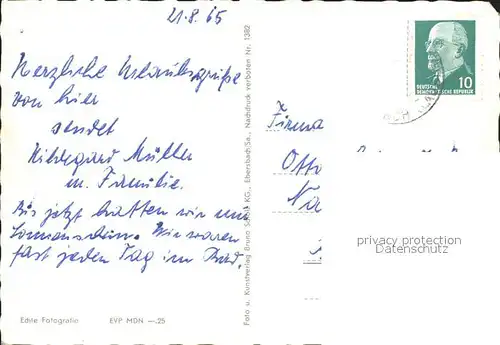 21.8.65
Herzliche Urlaubsgrüße
von hier
sendet
Hildegard Müller
m. Familie.
Bis jetzt hatten wir nur
Sonnenschein. Wir waren
fast jeden Tag im Bad.
Echte Fotografie EVP MDN —.25
Foto u. Kunstverlag Bruno KG., Ebersbach/Sa., Nachdruck verboten Nr. 1382
10
DEUTSCHE
DEMOKRATISCHE REPUBLIK
Firma
Otto
Na
privacy protection
Datenschutz